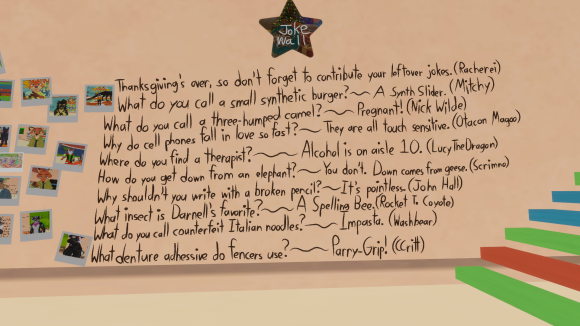 Joke
Wall
Thanksgiving's over, so don't forget to contribute your leftover jokes. (Racherei)
What do you call a small synthetic burger?~ A Synth Slider. (Mitchy)
What do you call a three-humped camel?~ Pregnant! (Nick Wilde)
Why do cell phones fall in love so fast?~ They are all touch sensitive. (Otacon Magoo)
Where do you find a therapist?~ Alcohol is on aisle 10. (LucyTheDragon)
How do you get down from an elephant?~ You don't. Down comes from geese. (Scrimno)
Why shouldn't you write with a broken pencil?~ It's pointless. (John Hall)
What insect is Darnell's favorite?~ A Spelling Bee. (Rocket T. Coyote)
What do you call counterfeit Italian noodles?~ Impasta. (Washbear)
What denture adhesive do fencers use?~ Parry-Grip! (CCritt)